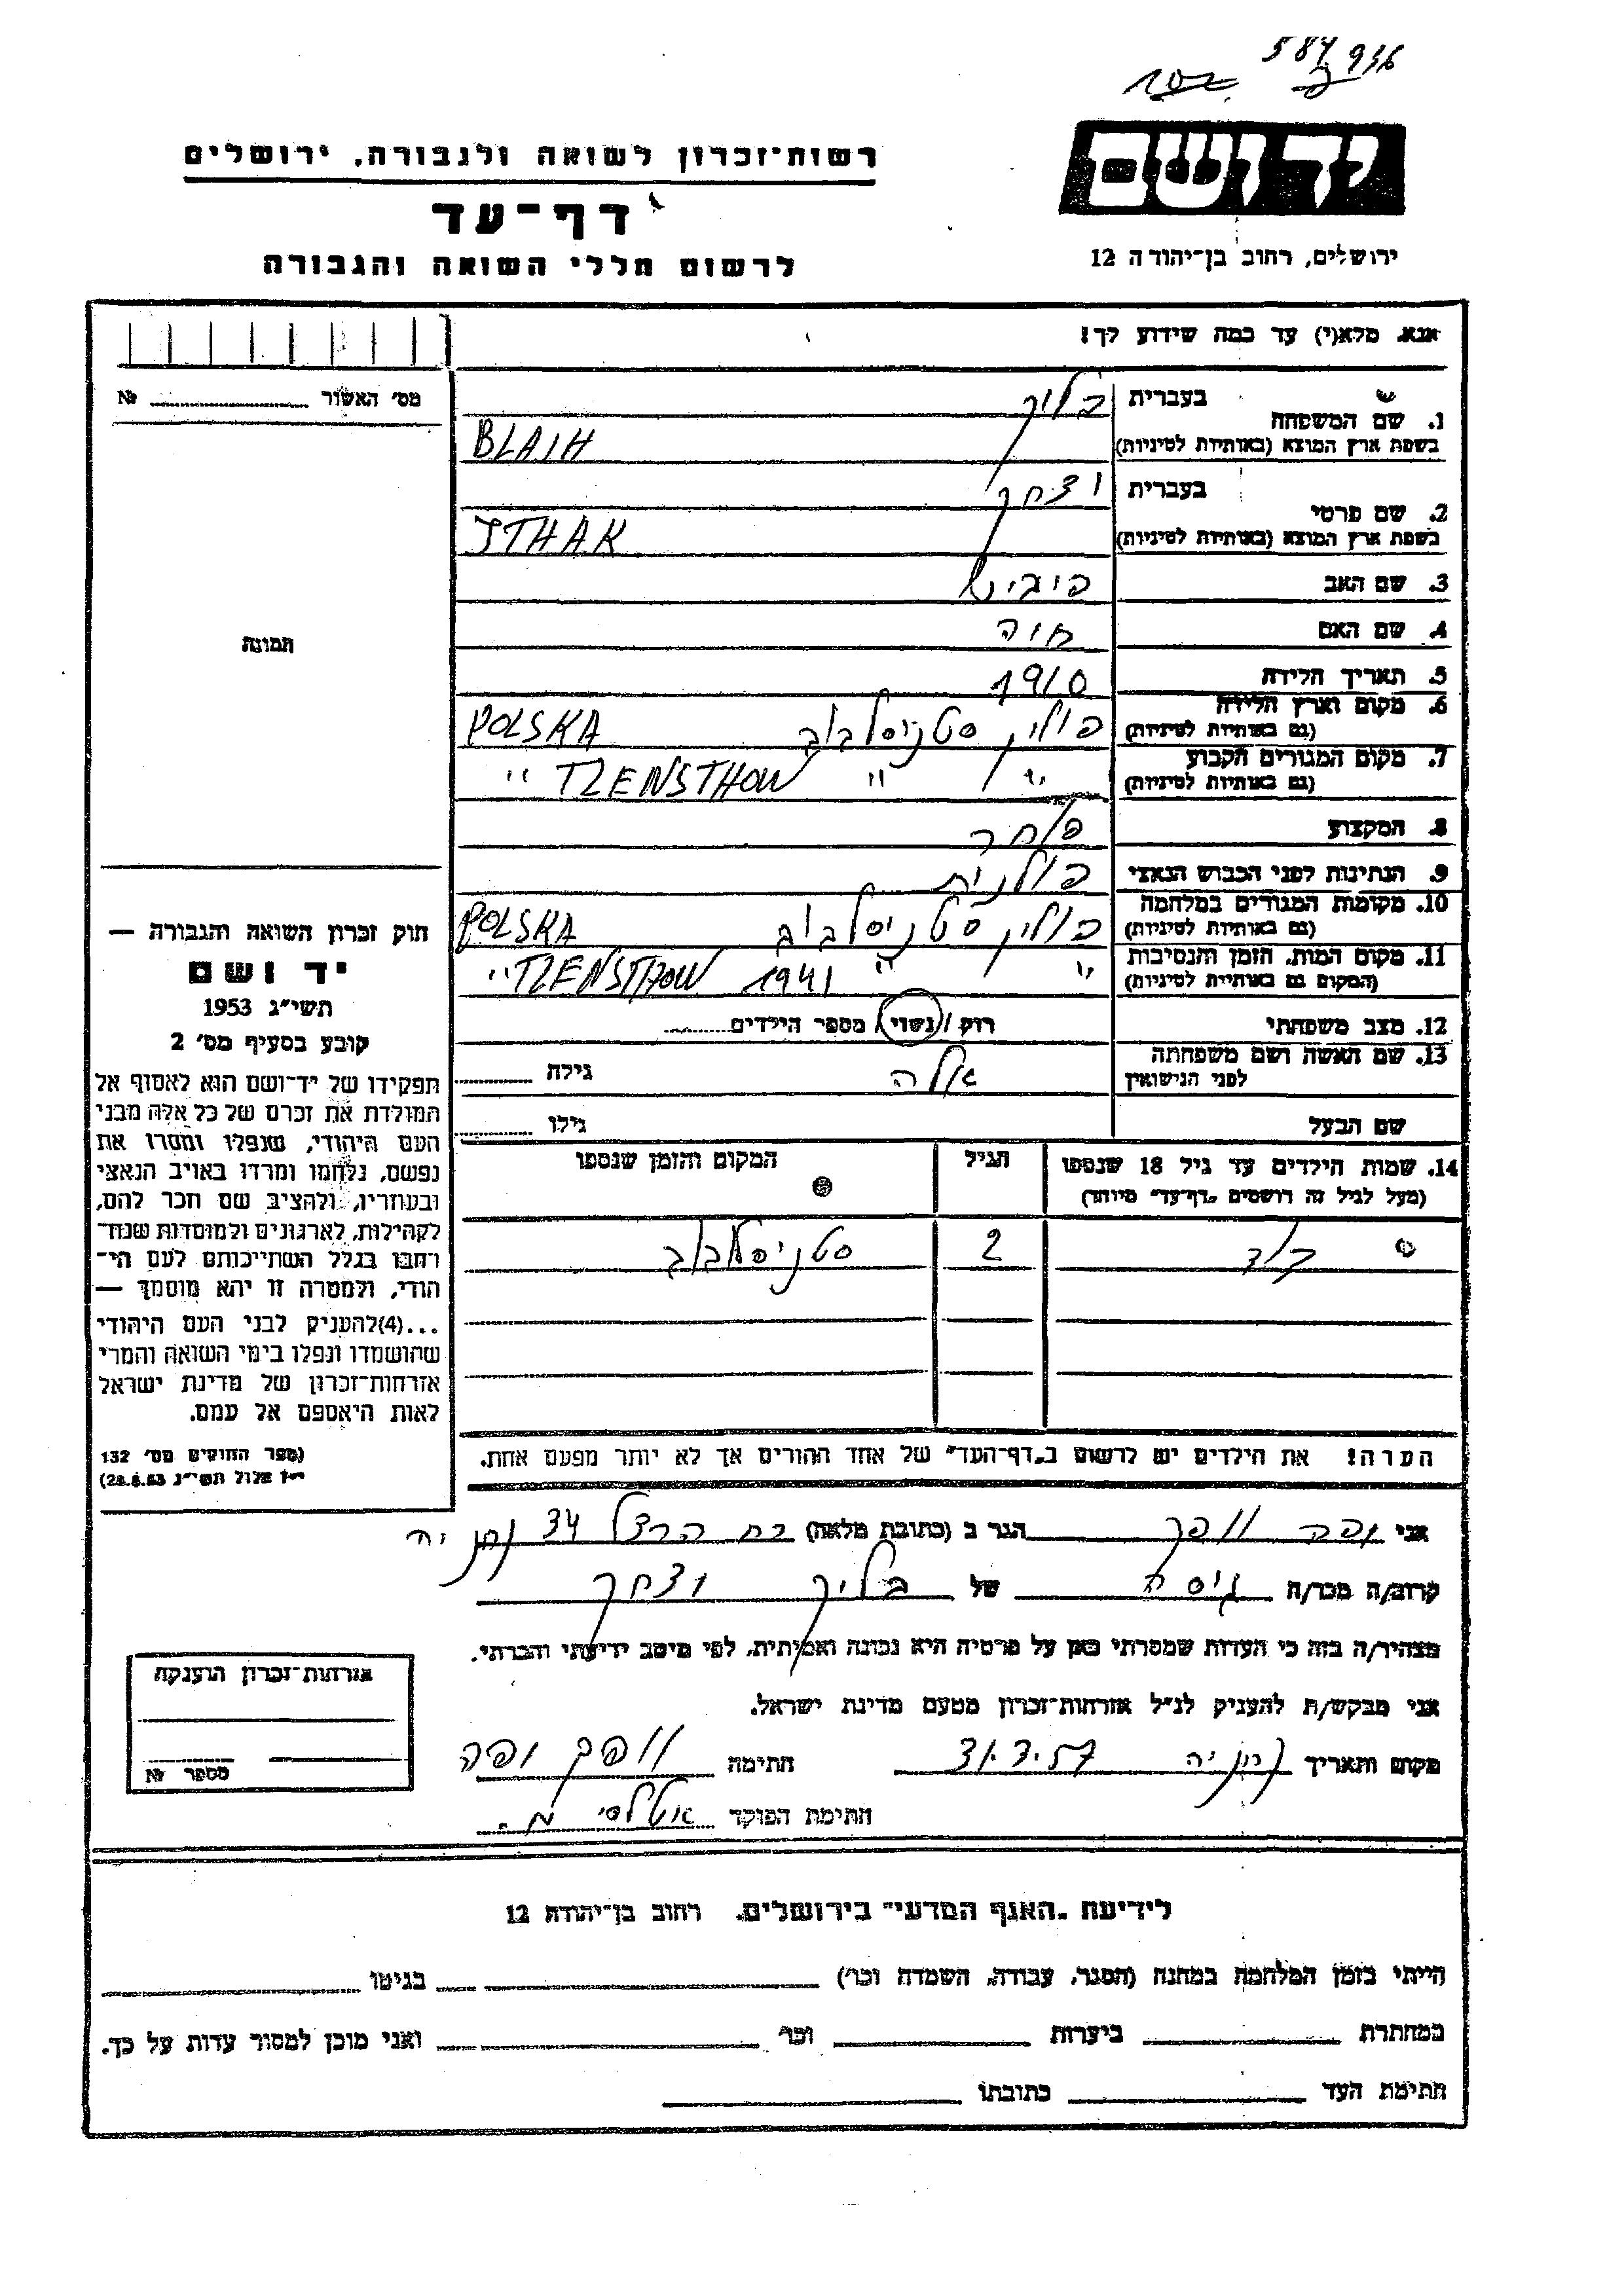 587936
102
יד ושם
רשות־זכרון לשואה ולגבורה, ירושלים
דף־עד
לרשום חללי השואה והגבורה
ירושלים, רחוב בן־יהודה 12
אנא, מלא(י) עד כמה שידוע לך!
מס' האשור № 
תמונה
1. שם המשפחה
בעברית בלוך
בשפת ארץ המוצא (באותיות לטיניות) BLAIH
2. שם פרטי
בעברית יצחק
בשפת ארץ המוצא (באותיות לטיניות) ITHAK
3. שם האב
4. שם האם חוה
5. תאריך הלידה 1910
6. מקום וארץ הלידה (גם באותיות לטיניות) פולין סטניסלבוב POLSKA
7. מקום המגורים הקבוע (גם באותיות לטיניות) " " TZENSTHOW "
8. המקצוע
9. הנתינות לפני הכבוש הנאצי פולנית
10. מקומות המגורים במלחמה (גם באותיות לטיניות) פולין סטניסלבוב POLSKA
11. מקום המות, הזמן והנסיבות (המקום גם באותיות לטיניות) " " 1941 TZENSTHOW "
12. מצב משפחתי רוק / נשוי / מספר הילדים
13. שם האשה ושם משפחתה לפני הנישואין אלה גילה
שם הבעל גילו
14. שמות הילדים עד גיל 18 שנספו
(מעל לגיל זה רושמים "דף־עד" מיוחד)
הגיל
המקום והזמן שנספו
2 סטניסלבוב
הערה! את הילדים יש לרשום ב"דף־העד" של אחד ההורים אך לא יותר מפעם אחת.
חוק זכרון השואה והגבורה —
יד ושם
תשי"ג 1953
קובע בסעיף מס' 2
תפקידו של יד־ושם הוא לאסוף אל
המולדת את זכרם של כל אלה מבני
העם היהודי, שנפלו ומסרו את
נפשם, נלחמו ומרדו באויב הנאצי
ובעוזריו, ולהציב שם וזכר להם,
לקהילות, לארגונים ולמוסדות שנח־
רבו בגלל השתייכותם לעם הי־
הודי, ולמטרה זו יהא מוסמך —
...(4)להעניק לבני העם היהודי
שהושמדו ונפלו בימי השואה והמרי
אזרחות־זכרון של מדינת ישראל
לאות היאספם אל עמם.
(ספר החוקים מס' 132
י"ז אלול תשי"ג 28.8.53)
אני הגר ב (כתובת מלאה) רח הרצל 34 נתניה
קרוב/ה מכר/ה גיסה של בליך יצחק
מצהיר/ה בזה כי העדות שמסרתי כאן על פרטיה היא נכונה ואמיתית, לפי מיטב ידיעתי והכרתי.
אני מבקש/ת להעניק לנ"ל אזרחות־זכרון מטעם מדינת ישראל.
מקום ותאריך נתניה 31.3.57 חתימה
חתימת הפוקד
אזרחות־זכרון הוענקה
מספר №
לידיעת "האגף המדעי" בירושלים, רחוב בן־יהודה 12
הייתי בזמן המלחמה במחנה (הסגר, עבודה, השמדה וכו') בגיטו
במחתרת ביערות וכו' ואני מוכן למסור עדות על כך.
חתימת העד כתובתו